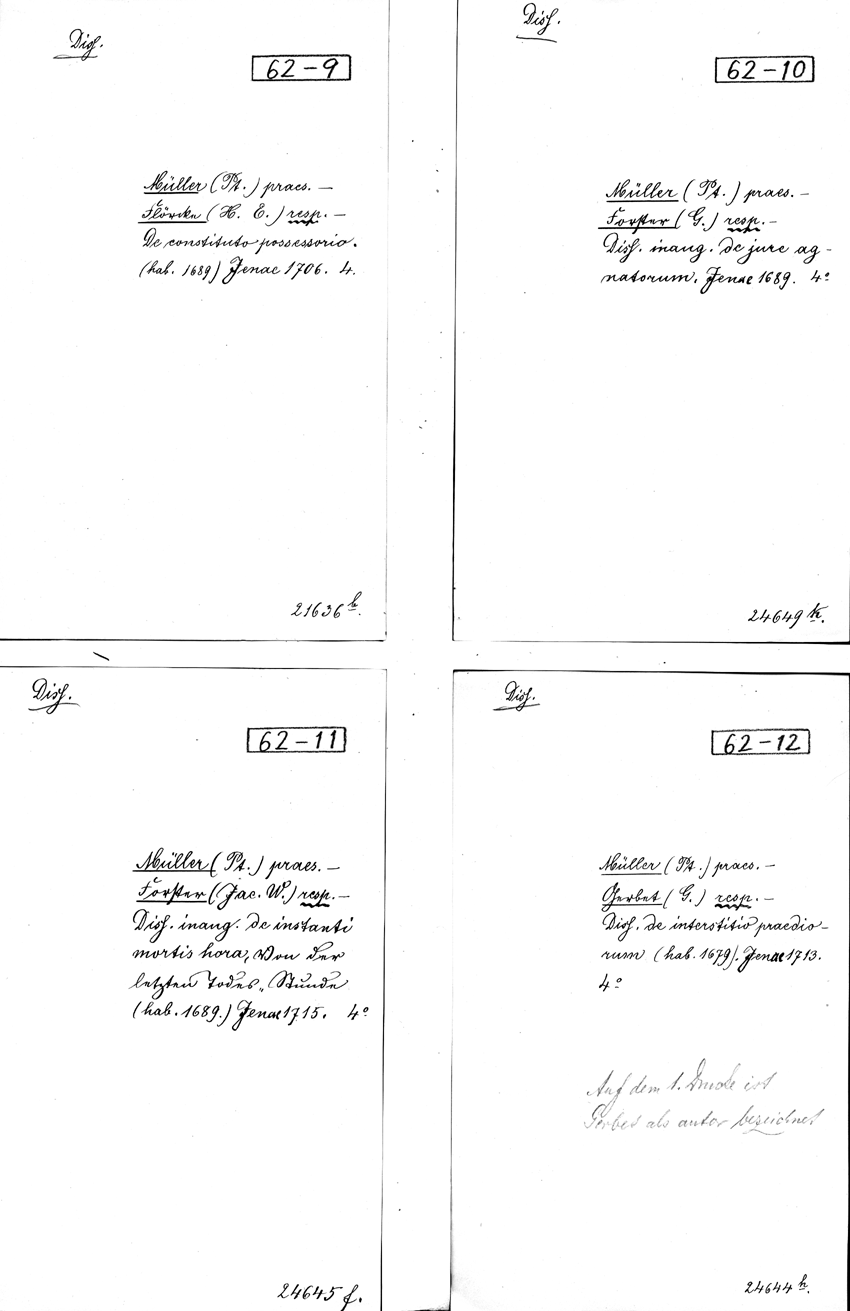 Diss.
62-9
Müller (Pt.) praes. —
Flörcke (H. E.) resp. —
De constituto possessorio.
(hab. 1689) Jenae 1706. 4.
21636 h.
Diss.
62-10
Müller (Pt.) praes. —
Forster (G.) resp. —
Diss. inaug. de jure ag-
natorum. Jenae 1689. 4°
24649 k.
Diss.
62-11
Müller (Pt.) praes. —
Forster (Jac. W.) resp. —
Diss. inaug. de instanti
mortis hora, Von der
letzten Todes-Stunde
(hab. 1689.) Jenae 1715. 4°
24645 f.
Diss.
62-12
Müller (Pt.) praes. —
Gerbet (G.) resp. —
Diss. de interstitio praedio-
rum (hab. 1679). Jenae 1713.
4°
Auf dem 1. Drucke ist
Gerbet als autor bezeichnet
24644 h.